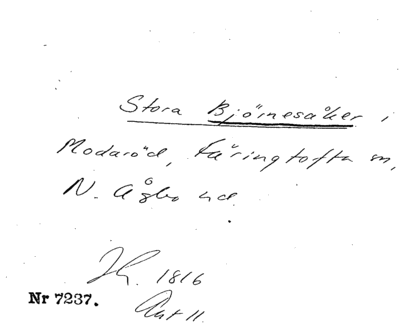 Stora Björnesåker i
Modaröd, Färingtofta sn,
N. Åsbo hd.
Jh. 1816
Nr 7237.
Akt 11.